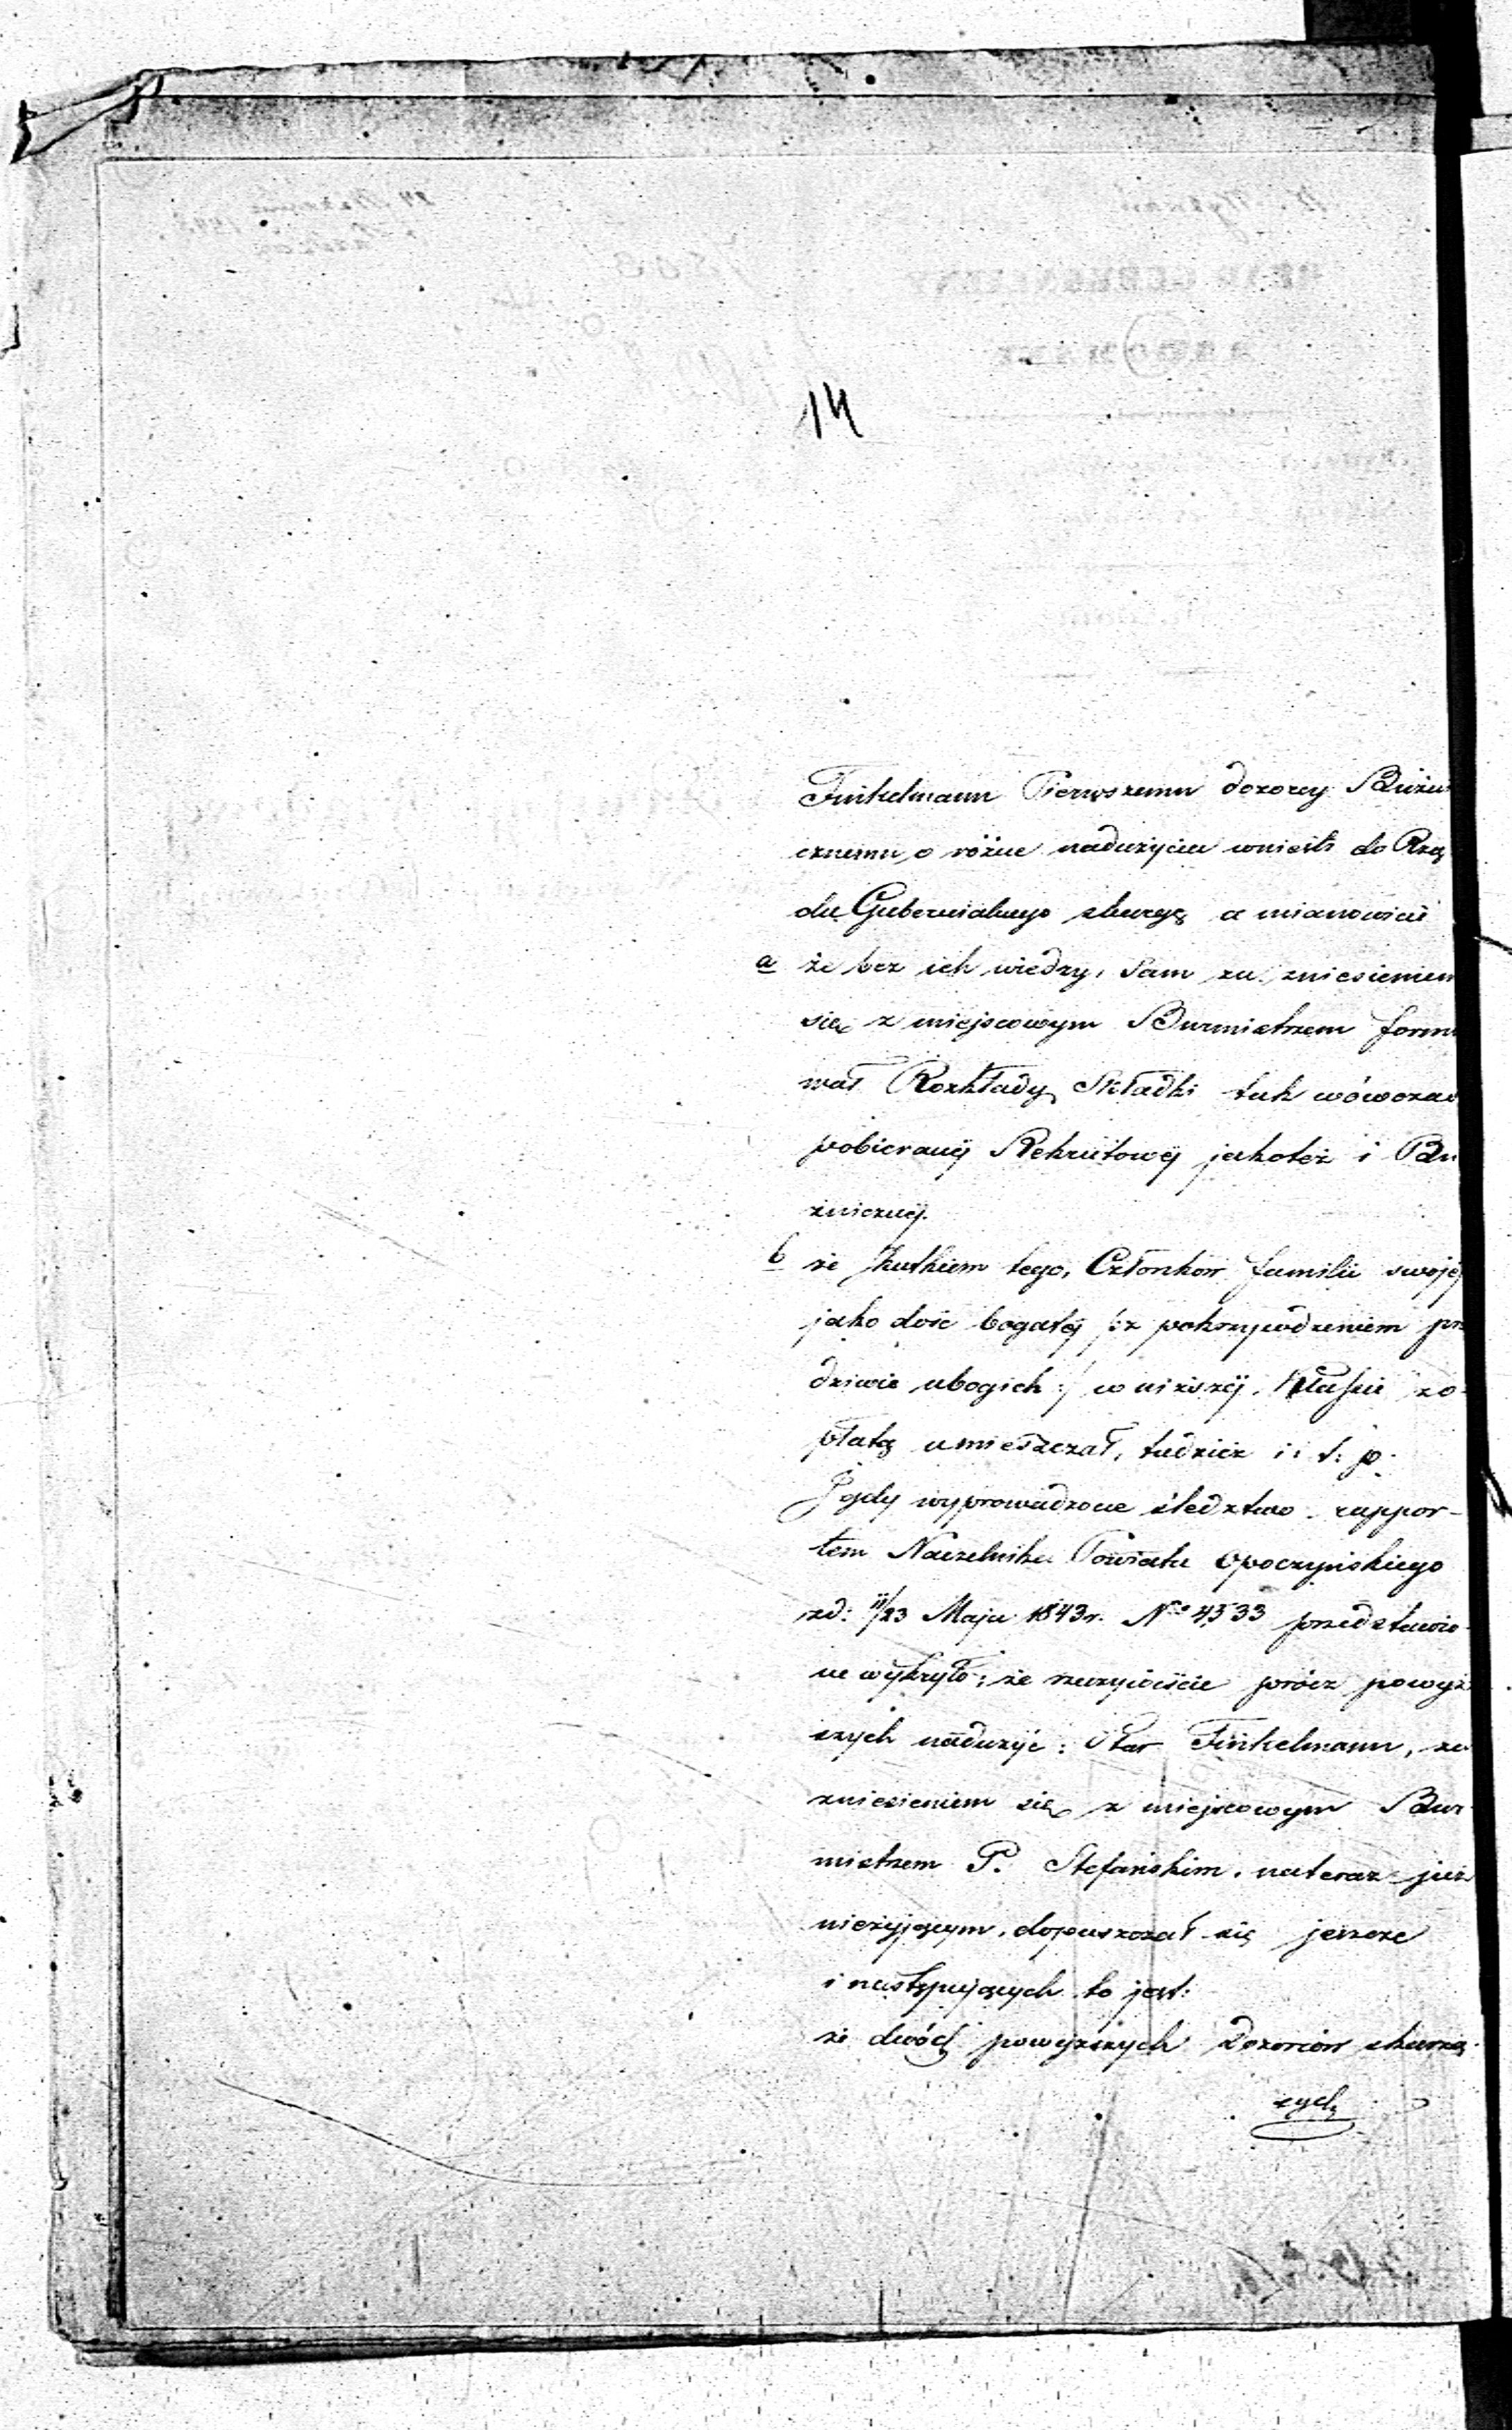 14
Finkelmann Pierwszemu dozorcy Bużni
cznemu, o różne nadużycia wnieśli do Rzą
du Gubernialnego skargę a mianowicie
a że bez ich wiedzy, sam za zniesieniem
się z miejscowym Burmistrzem formo
wał Rozkłady Składki tak wówczas
pobieranéj Rekrutowéj jakoteż i Bu
żnicznéj.
b że skutkiem tego, Członków familii swojéj
jako dość bogatéj /: z pokrzywdzeniem pra
dziwie ubogich :/ w niższéj klassie z o-
płatą umieszczał, tudzież i: t: p.
I gdy wyprowadzone śledztwo rappor-
tem Naczelnika Powiatu Opoczyńskiego
z d: 11/23 Maja 1843 r. No 4533 przedstawio-
ne wykryło; że rzeczywiście prócz powyż
szych nadużyć: Star Finkelmann, za
zniesieniem się z miejscowym Bur-
mistrzem P. Stefańskim, nateraz już
nieżyjącym, dopuszczał się jeszcze
i następujących to jest:
że dwóch powyższych Dozorców skarzą-
cych